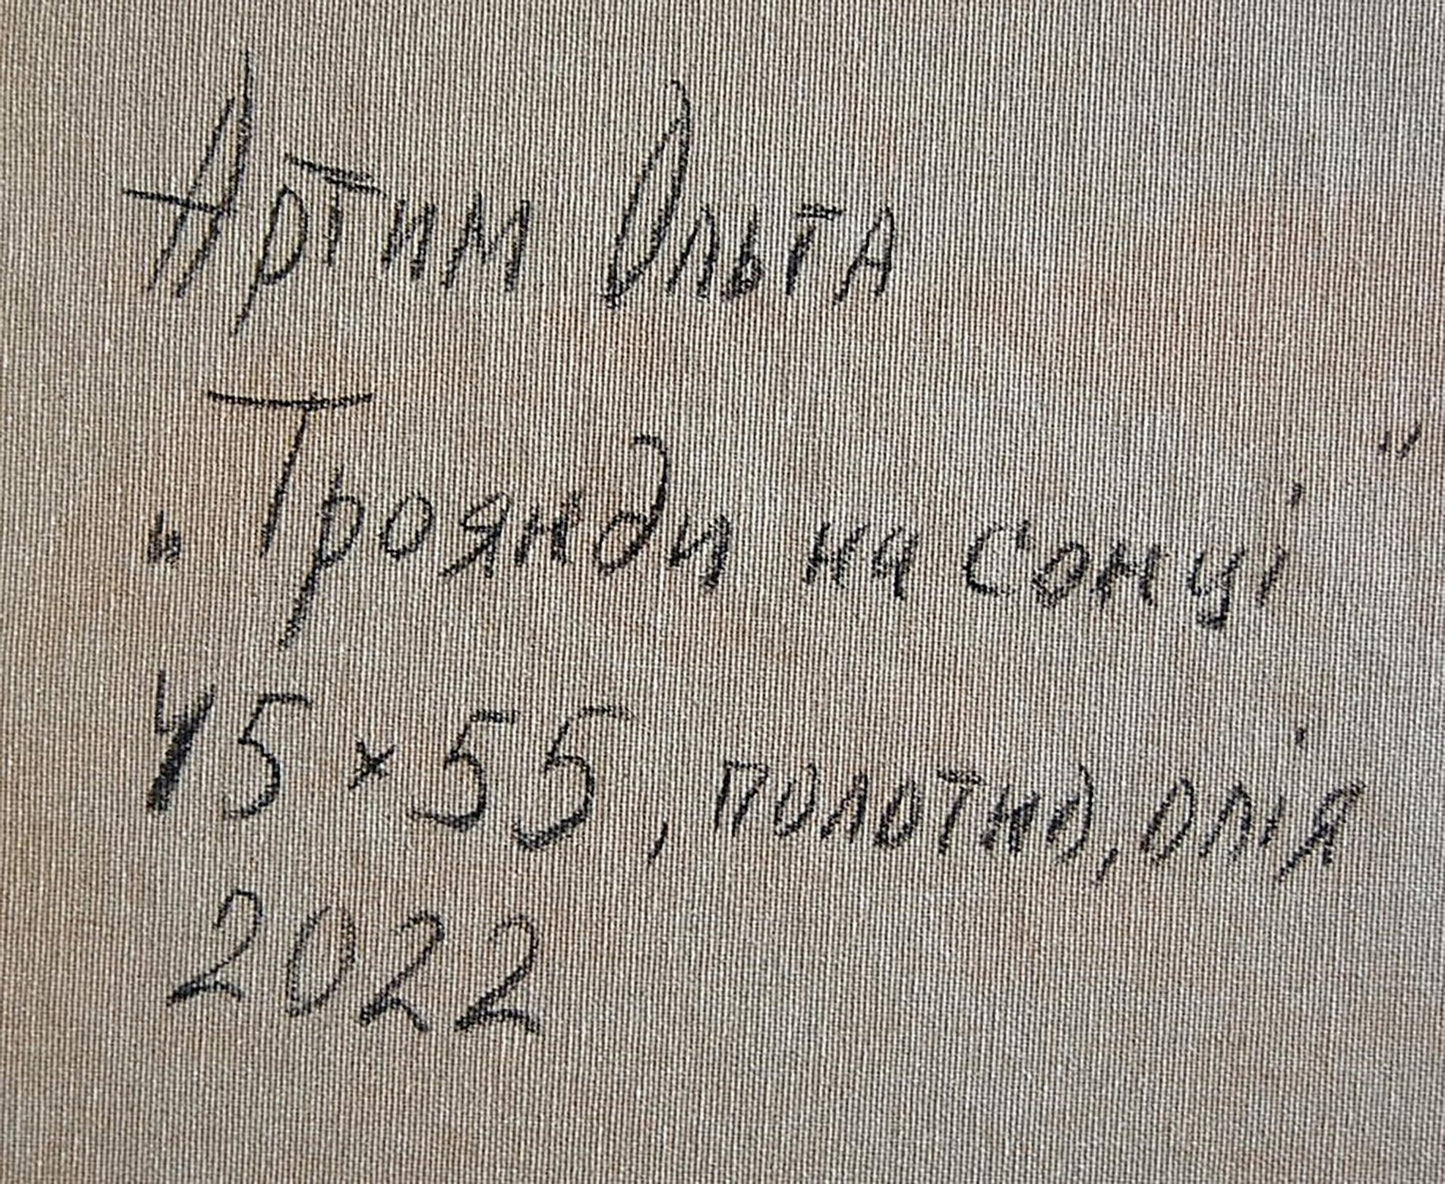 Артим Ольга
„Трояди на сонці"
45×55, полотно, олія
2022